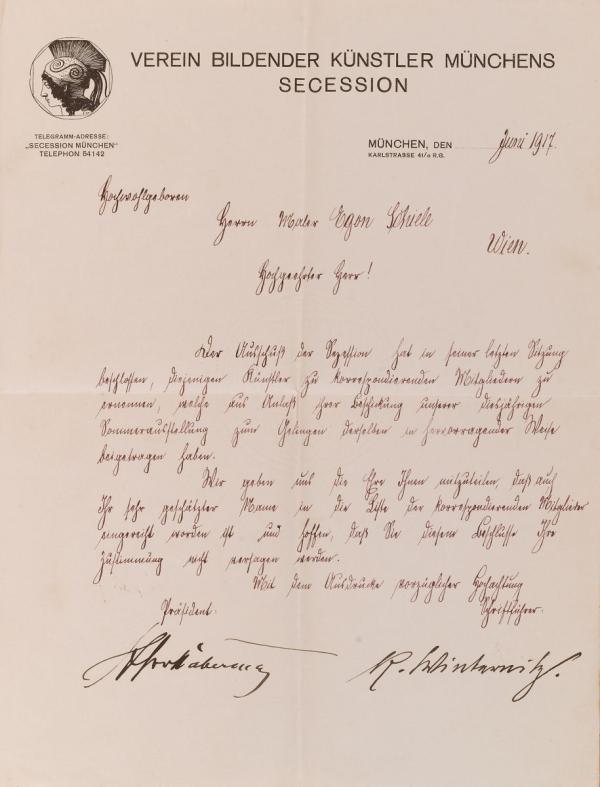 VEREIN BILDENDER KÜNSTLER MÜNCHENS
SECESSION
TELEGRAMM-ADRESSE:
„SECESSION MÜNCHEN"
TELEPHON 54142
MÜNCHEN, DEN Juni 1917.
KARLSTRASSE 41/0 R.G.
Hochwohlgeboren
Herrn Maler Egon Schiele
Wien.
Hochgeehrter Herr!
Der Ausschuß der Sezession hat in seiner letzten Sitzung
beschlossen, diejenigen Künstler zu korrespondierenden Mitgliedern zu
ernennen, welche aus Anlaß ihrer Beschickung unserer diesjährigen
Sommerausstellung zum Gelingen derselben in hervorragender Weise
beigetragen haben.
Wir geben uns die Ehre Ihnen mitzuteilen, daß auch
Ihr sehr geschätzter Name in die Liste der korrespondierenden Mitglieder
eingereiht worden ist und hoffen, daß Sie diesem Beschlusse Ihre
Zustimmung nicht versagen werden.
Mit dem Ausdrucke vorzüglicher Hochachtung
Präsident: Schriftführer:
R. Winternitz.